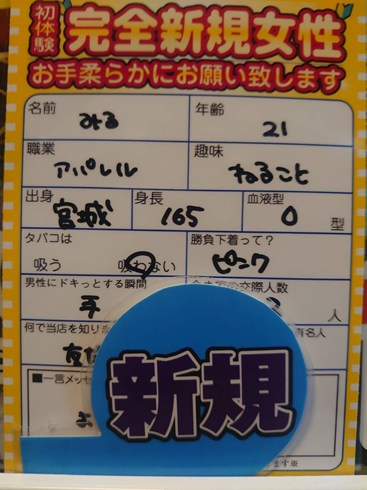 初体験 完全新規女性
お手柔らかにお願い致します
名前 みる 年齢 21
職業 アパレル 趣味 ねること
出身 宮城 身長 165 血液型 O 型
タバコは 吸う 吸わない 勝負下着って? ピンク
男性にドキっとする瞬間 手 交際人数 人
何で当店を知りま 友 名人
■一言メッセ
よ
新規
ます※